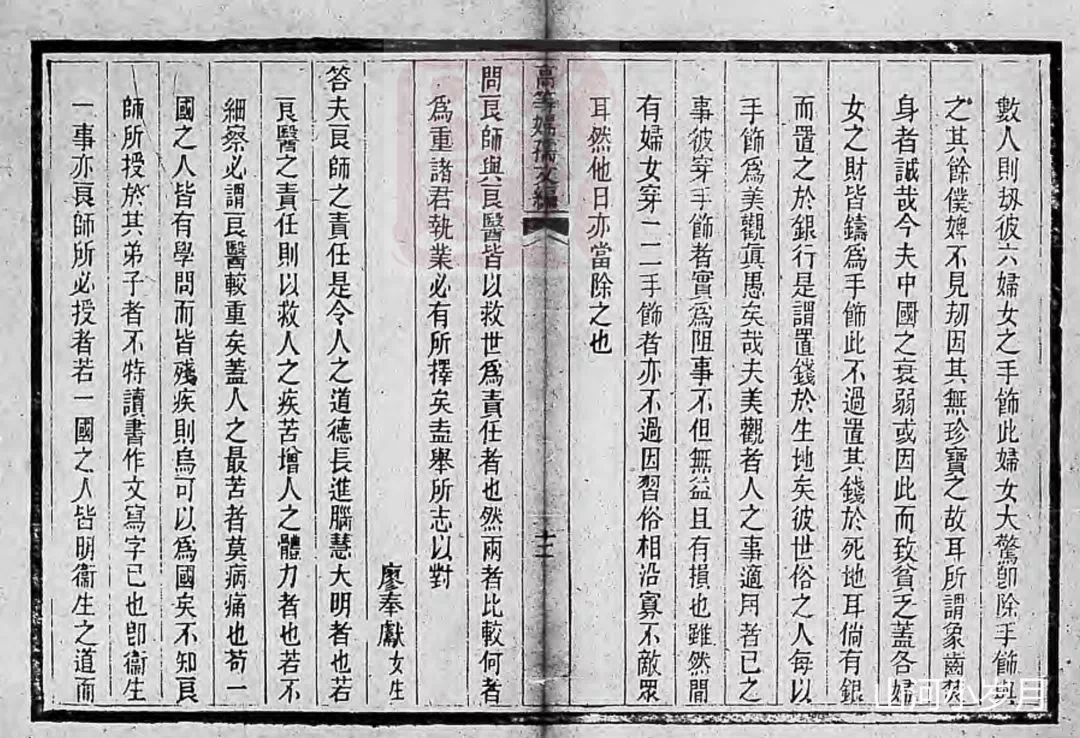 數人則刼彼六婦女之手飾此婦女大驚卽除手飾與
之其餘僕婢不見刧因其無珍寶之故耳所謂象齒焚
身者誠哉今夫中國之衰弱或因此而致貧乏蓋各婦
女之財皆鑄爲手飾此不過置其錢於死地耳倘有銀
而置之於銀行是謂置錢於生地矣彼世俗之人每以
手飾爲美觀眞愚矣哉夫美觀者人之事適用者已之
事彼穿手飾者實爲阻事不但無益且有損也雖然間
有婦女穿一二手飾者亦不過因習俗相沿寡不敵眾
耳然他日亦當除之也
高等婦孺文編
十二
問良師與良醫皆以救世爲責任者也然兩者比較何者
爲重諸君執業必有所擇矣盍舉所志以對
廖奉獻女生
答夫良師之責任是令人之道德長進腦慧大明者也若
良醫之責任則以救人之疾苦增人之體力者也若不
細察必謂良醫較重矣蓋人之最苦者莫病痛也苟一
國之人皆有學問而皆殘疾則烏可以爲國矣不知良
師所授於其弟子者不特讀書作文寫字已也卽衞生
一事亦良師所必授者若一國之人皆明衞生之道而
山河小岁月